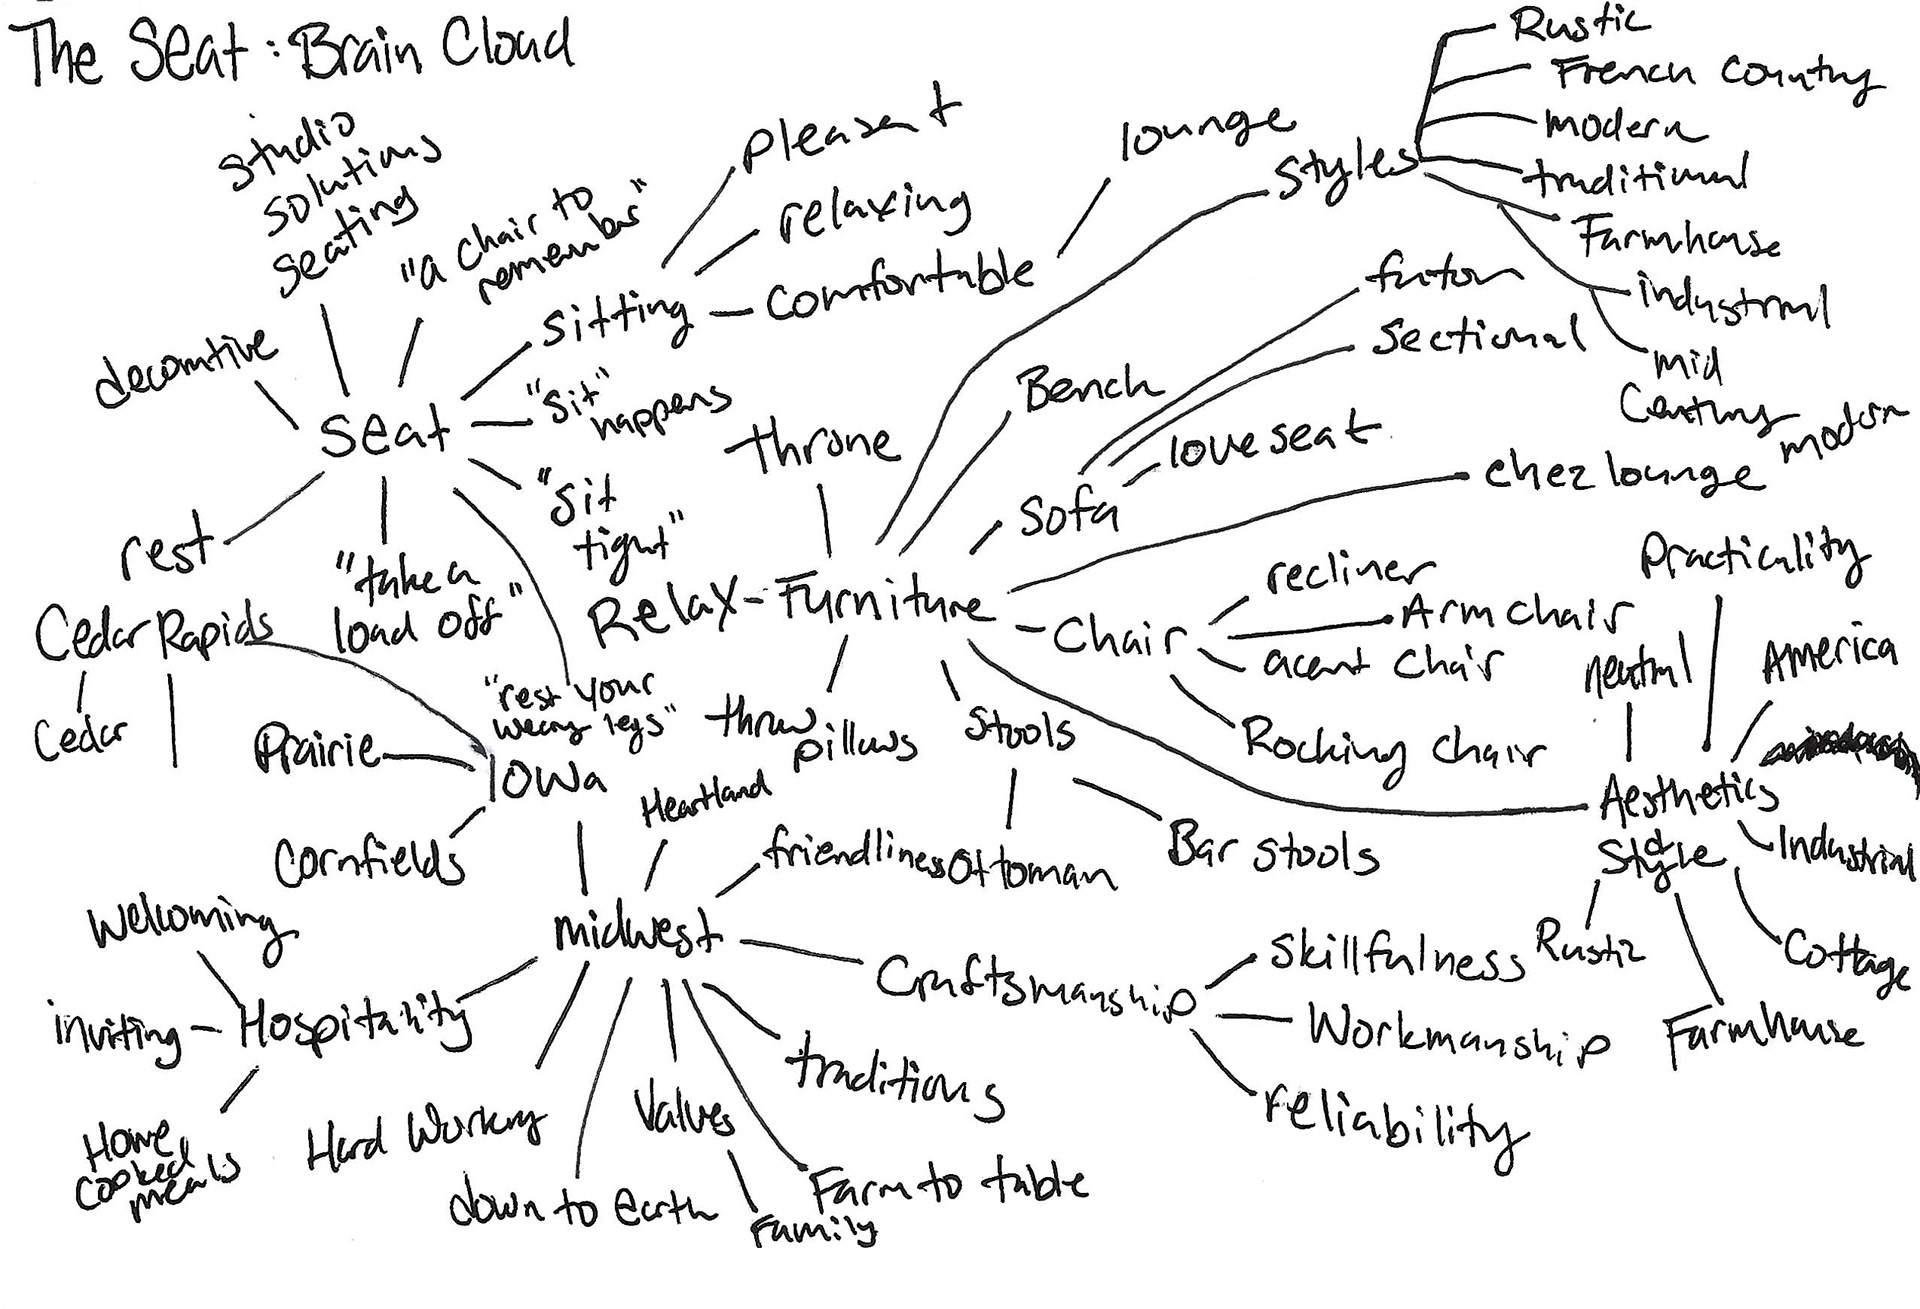 The Seat: Brain Cloud
studio
solutions
seating
"a chair to
remember"
decorative
Seat
sitting
pleasant
relaxing
Comfortable
lounge
"Sit"
happens
"Sit
tight"
rest
"take a
load off"
"rest your
weary legs"
Styles
Rustic
French Country
modern
traditional
Farmhouse
industrial
mid
Century
modern
futon
Sectional
love seat
Sofa
Bench
throne
chez lounge
Relax-Furniture
Chair
recliner
Arm chair
acent chair
Rocking chair
throw
pillows
Stools
Ottoman
Bar stools
Practicality
neutral
America
Aesthetics
&
Style
Industrial
Cottage
Rustic
Farmhouse
Cedar Rapids
Cedar
Prairie
Iowa
Cornfields
Heartland
midwest
friendliness
Craftsmanship
Skillfulness
Workmanship
reliability
traditions
Farm to table
Values
Family
down to earth
Hard Working
Hospitality
Welcoming
inviting
Home
cooked
meals